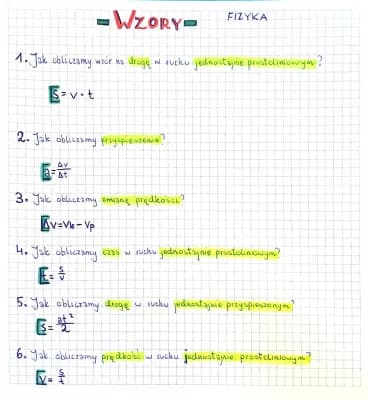 - WZORY -
FIZYKA
1. Jak obliczamy wzór na drogę w ruchu jednostajnie prostoliniowym?
s = v · t
2. Jak obliczamy przyspieszenie?
a = Δv/Δt
3. Jak obliczamy zmianę prędkości?
Δv = Vk - Vp
4. Jak obliczamy czas w ruchu jednostajnie prostoliniowym?
t = s/v
5. Jak obliczamy drogę w ruchu jednostajnie przyspieszonym?
s = at²/2
6. Jak obliczamy prędkość w ruchu jednostajnie prostoliniowym?
v = s/t